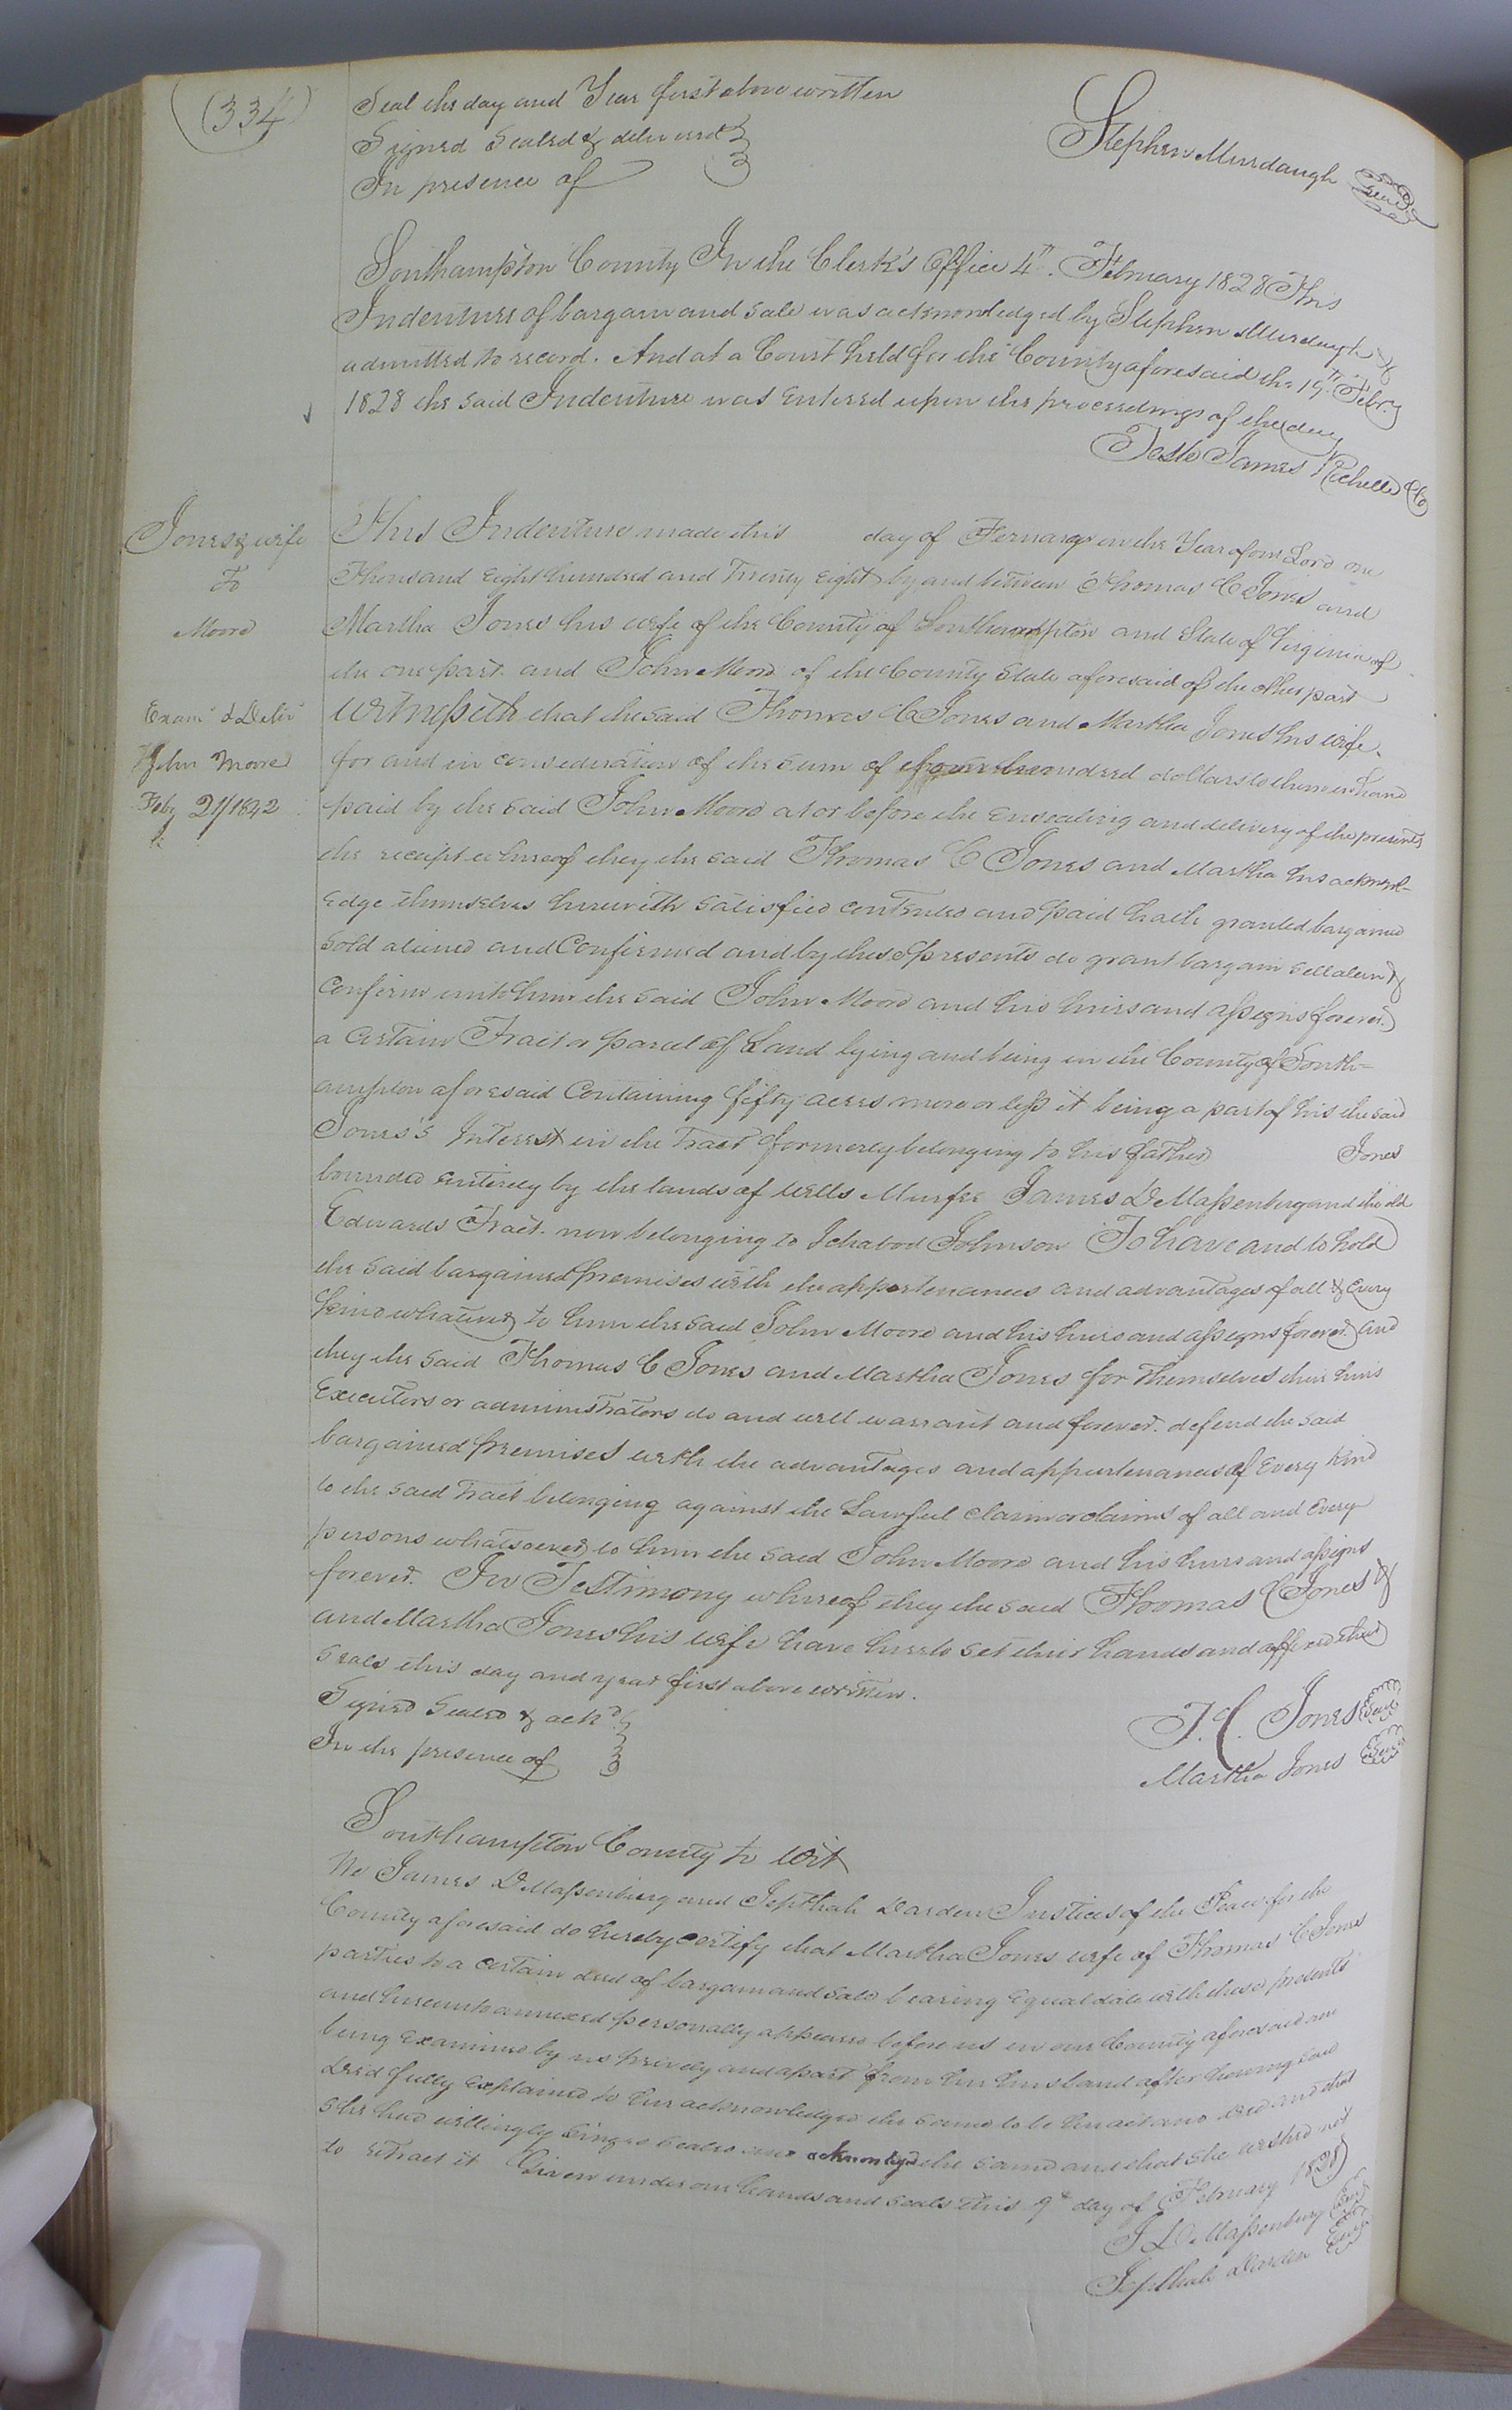 (334)
Seal the day and Year first above written
Signed Sealed & delivered
In presence of
Stephen Murdaugh Seal
Southampton County In the Clerk's Office 4th. February 1828 This
Indenture of bargain and sale was acknowledged by Stephen Murdaugh &
admitted to record. And at a Court held for the County aforesaid the 19th. Febry
1828 the said Indenture was Entered upon the proceedings of the day
Teste James Rochelle Clo
Jones & wife
To
Moore
This Indenture made this day of Fernary in the Year of our Lord one
Thousand Eight hundred and Twenty Eight by and between Thomas C Jones and
Martha Jones his wife of the County of Southampton and State of Virginia of
the one part and John Moore of the County State aforesaid of the other part
Exam & Deliv
John Moore
Feby 21/1842
Witnesseth that the said Thomas C Jones and Martha Jones his wife
for and in consideration of the sum of hundred dollars to them in hand
paid by the said John Moore at or before the Ensealing and delivery of the presents
the receipt whereof they the said Thomas C Jones and Martha his acknowl-
edge themselves herewith satisfied contented and paid hath granted bargained
sold aliened and Confirmed and by these presents do grant bargain sell alien &
Confirm unto him the said John Moore and his heirs and assigns forever
a certain Tract or parcel of Land lying and being in the County of South-
ampton aforesaid Containing fifty acres more or less it being a part of his the said
Jones's Interest in the Tract formerly belonging to his father Jones
bounded entirely by the lands of Wells Murfee James D Massenburg and the old
Edwards Tract. now belonging to Ichabod Johnson To have and to hold
the said bargained premises with the appertenances and advantages of all & Every
kind whatever to him the said John Moore and his heirs and assigns forever and
they the said Thomas C Jones and Martha Jones for Themselves their heirs
Executors or administrators do and will warrant and forever defend the said
bargained premises with the advantages and appurtenances of Every kind
to the said Tract belonging against the Lawful claim or claims of all and Every
persons whatsoever to him the said John Moore and his heirs and assigns
forever. In Testimony whereof they the said Thomas C Jones &
and Martha Jones his wife have hereto set their hands and affixed their
seals this day and year first above written.
Signed Sealed & ackd.
In the presence of
T. C. Jones Seal
Martha Jones Seal
Southampton County to Wit
We James D Massenburg and Jepthah Darden Justices of the Peace for the
County aforesaid do hereby certify that Martha Jones wife of Thomas C Jones
parties to a certain deed of bargain and sale bearing Equal date with these presents
and hereunto annexed personally appeared before us in our County aforesaid and
being Examined by us privily and apart from her husband after having said
deed fully Explained to her acknowledged the same to be her act and deed and that
she had willingly singed sealed and acknowlgd the same and that she wished not
to retract it Given under our hands and seals this 9th day of February 1828
J D Massenburg Seal
Jepthah Darden Seal